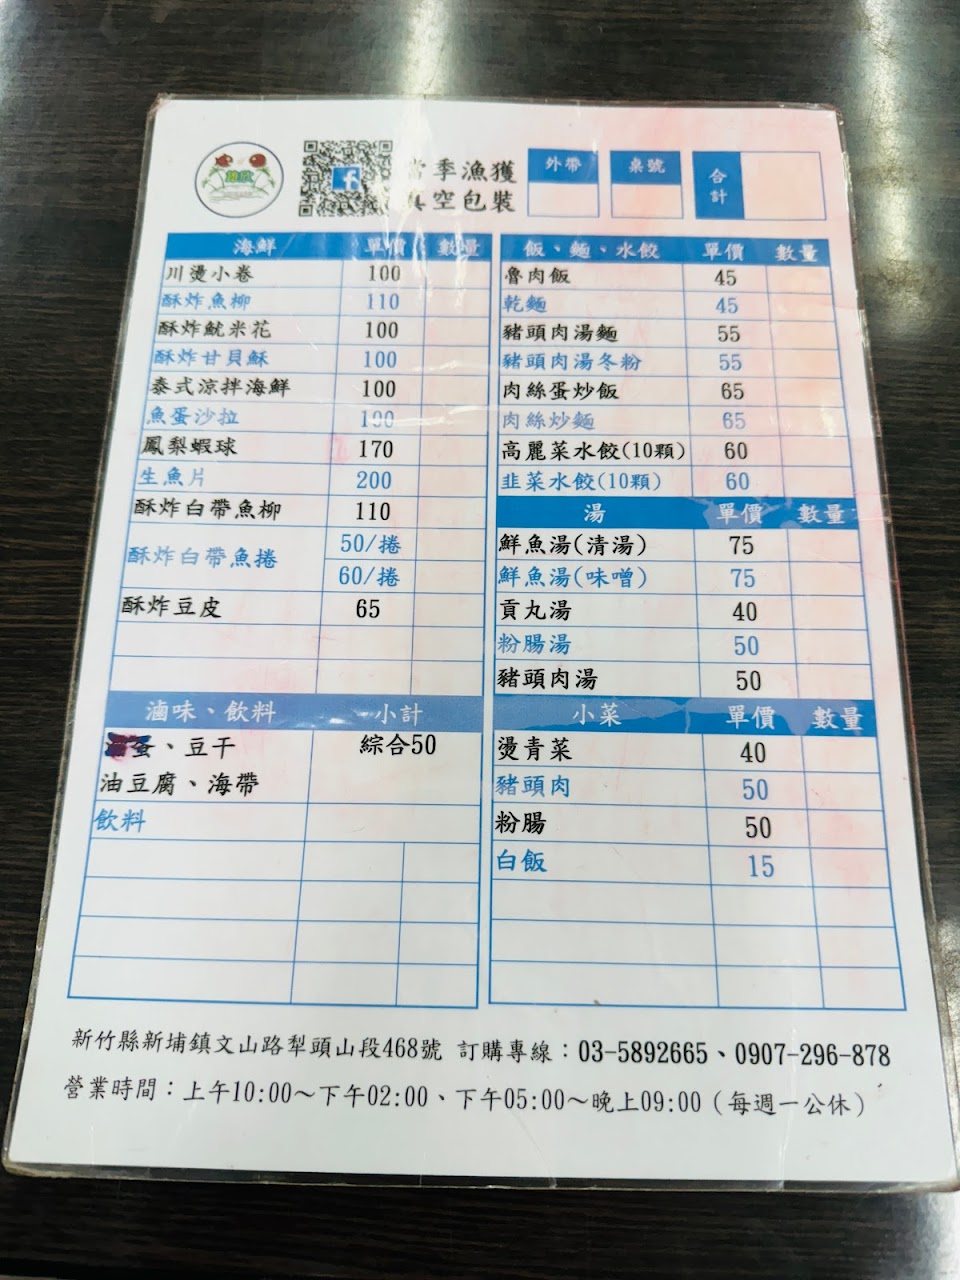 雄欣
當季漁獲
真空包裝
外帶
桌號
合計
海鮮 單價 數量
川燙小卷 100
酥炸魚柳 110
酥炸魷米花 100
酥炸甘貝酥 100
泰式涼拌海鮮 100
魚蛋沙拉 100
鳳梨蝦球 170
生魚片 200
酥炸白帶魚柳 110
酥炸白帶魚捲 50/捲
60/捲
酥炸豆皮 65
滷味、飲料 小計
蛋、豆干 綜合50
油豆腐、海帶
飲料
飯、麵、水餃 單價 數量
魯肉飯 45
乾麵 45
豬頭肉湯麵 55
豬頭肉湯冬粉 55
肉絲蛋炒飯 65
肉絲炒麵 65
高麗菜水餃(10顆) 60
韭菜水餃(10顆) 60
湯 單價 數量
鮮魚湯(清湯) 75
鮮魚湯(味噌) 75
貢丸湯 40
粉腸湯 50
豬頭肉湯 50
小菜 單價 數量
燙青菜 40
豬頭肉 50
粉腸 50
白飯 15
新竹縣新埔鎮文山路犁頭山段468號 訂購專線：03-5892665、0907-296-878
營業時間：上午10:00～下午02:00、下午05:00～晚上09:00（每週一公休）